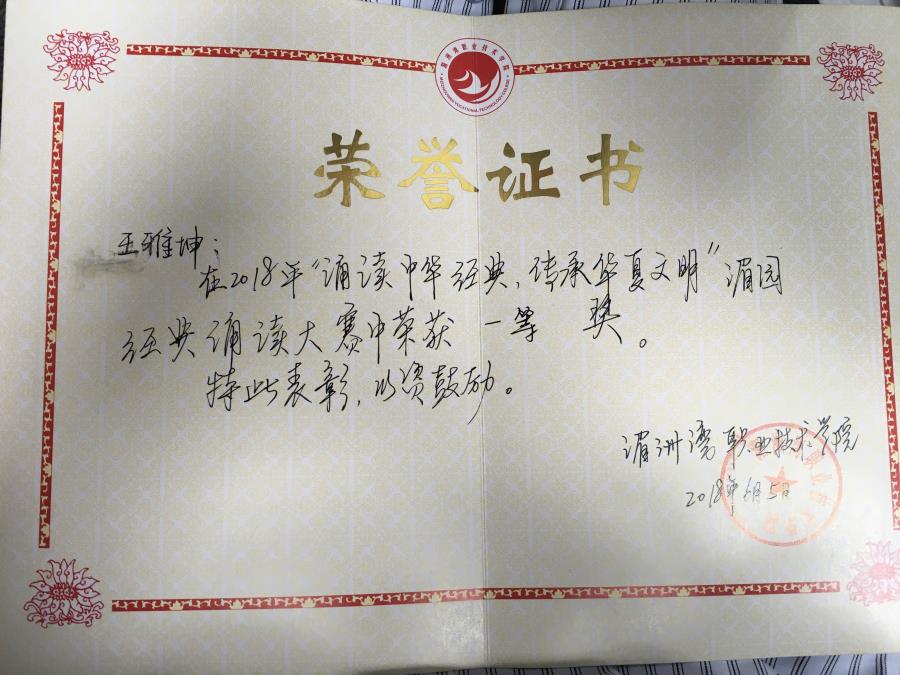 湄洲湾职业技术学院
MEIZHOUWAN VOCATIONAL TECHNOLOGY COLLEGE
荣誉证书
王雅坤：
在2018年“诵读中华经典，传承华夏文明”湄园
经典诵读大赛中荣获 一等 奖。
特此表彰，以资鼓励。
湄洲湾职业技术学院
2018年6月5日